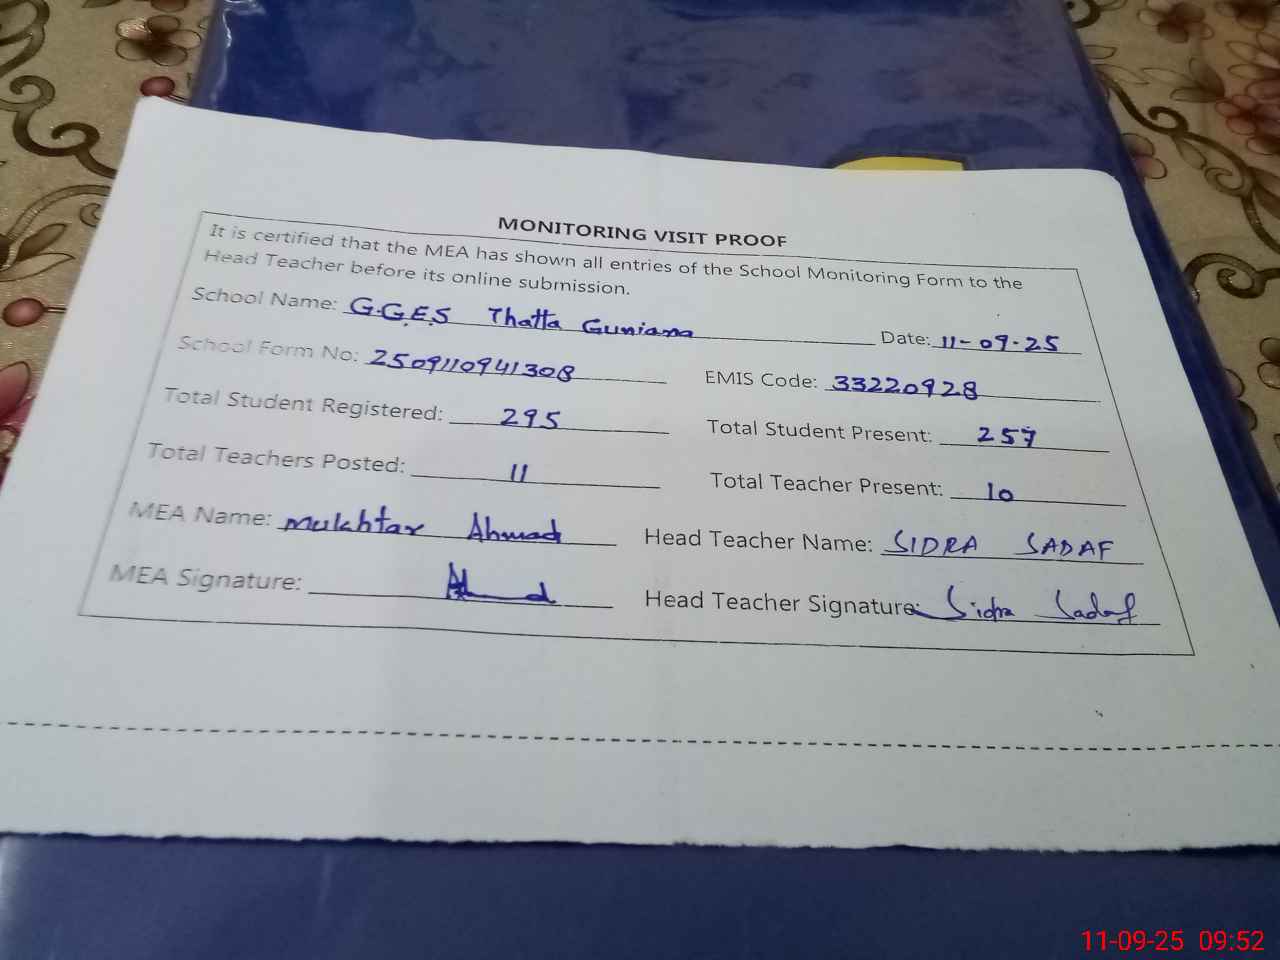 MONITORING VISIT PROOF
It is certified that the MEA has shown all entries of the School Monitoring Form to the
Head Teacher before its online submission.
School Name: G.G.E.S Thatta Guniana Date: 11-09-25
School Form No: 2509110941308 EMIS Code: 33220928
Total Student Registered: 295 Total Student Present: 257
Total Teachers Posted: 11 Total Teacher Present: 10
MEA Name: Mukhtar Ahmad Head Teacher Name: SIDRA SADAF
MEA Signature: Ahmad Head Teacher Signature: Sidra Sadaf
11-09-25 09:52